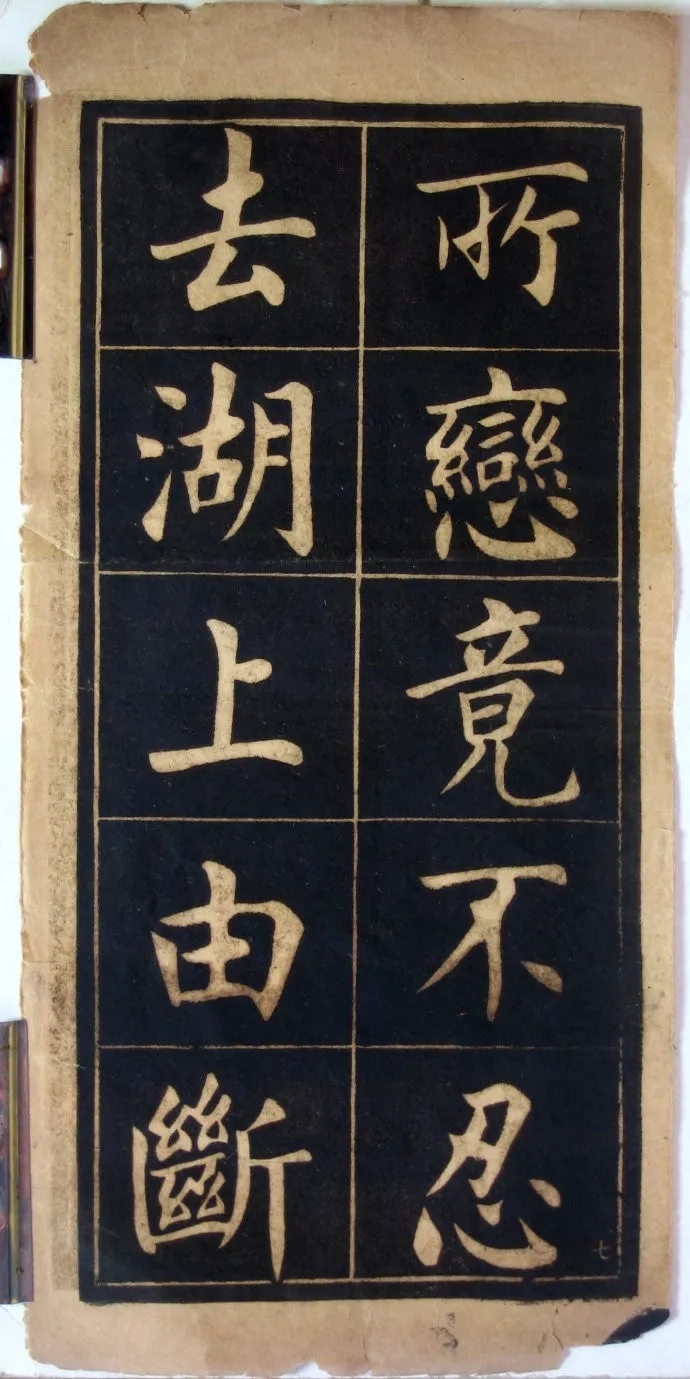 所戀竟不忍
七
去湖上由斷